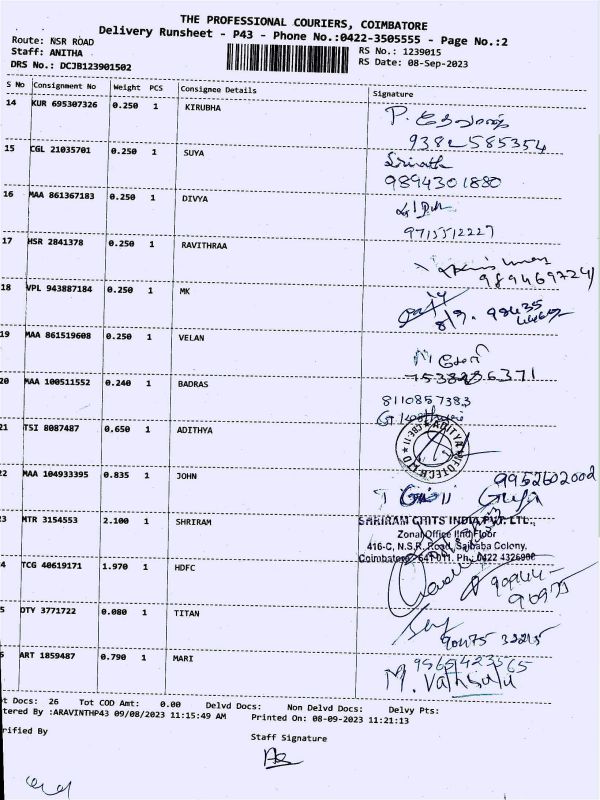 THE PROFESSIONAL COURIERS, COIMBATORE
Delivery Runsheet - P43 - Phone No.:0422-3505555 - Page No.:2
Route: NSR ROAD
Staff: ANITHA
DRS No.: DCJB123901502
RS No.: 1239015
RS Date: 08-Sep-2023
S No Consignment No Weight PCS Consignee Details Signature
14 KUR 695307326 0.250 1 KIRUBHA
9382585354
15 CGL 21035701 0.250 1 SUYA Srinath
9894301880
16 MAA 861367183 0.250 1 DIVYA
9715512227
17 HSR 2841378 0.250 1 RAVITHRAA
9894697241
18 VPL 943887184 0.250 1 MK
8/9.
19 MAA 861519608 0.250 1 VELAN
20 MAA 100511552 0.240 1 BADRAS 8110857383
21 TSI 8087487 0.650 1 ADITHYA
22 MAA 104933395 0.835 1 JOHN 9952602002
23 MTR 3154553 2.100 1 SHRIRAM SHRIRAM CHITS INDIA PVT. LTD.,
Zonal Office IInd Floor
416-C, N.S.R. Road, Saibaba Colony,
Coimbatore - 641 011. Ph.: 0422 4326
4 TCG 40619171 1.970 1 HDFC
5 DTY 3771722 0.080 1 TITAN
90475 32215
ART 1859487 0.790 1 MARI
M.
t Docs: 26 Tot COD Amt: 0.00 Delvd Docs: Non Delvd Docs: Delvy Pts:
tered By :ARAVINTHP43 09/08/2023 11:15:49 AM Printed On: 08-09-2023 11:21:13
rified By
Staff Signature